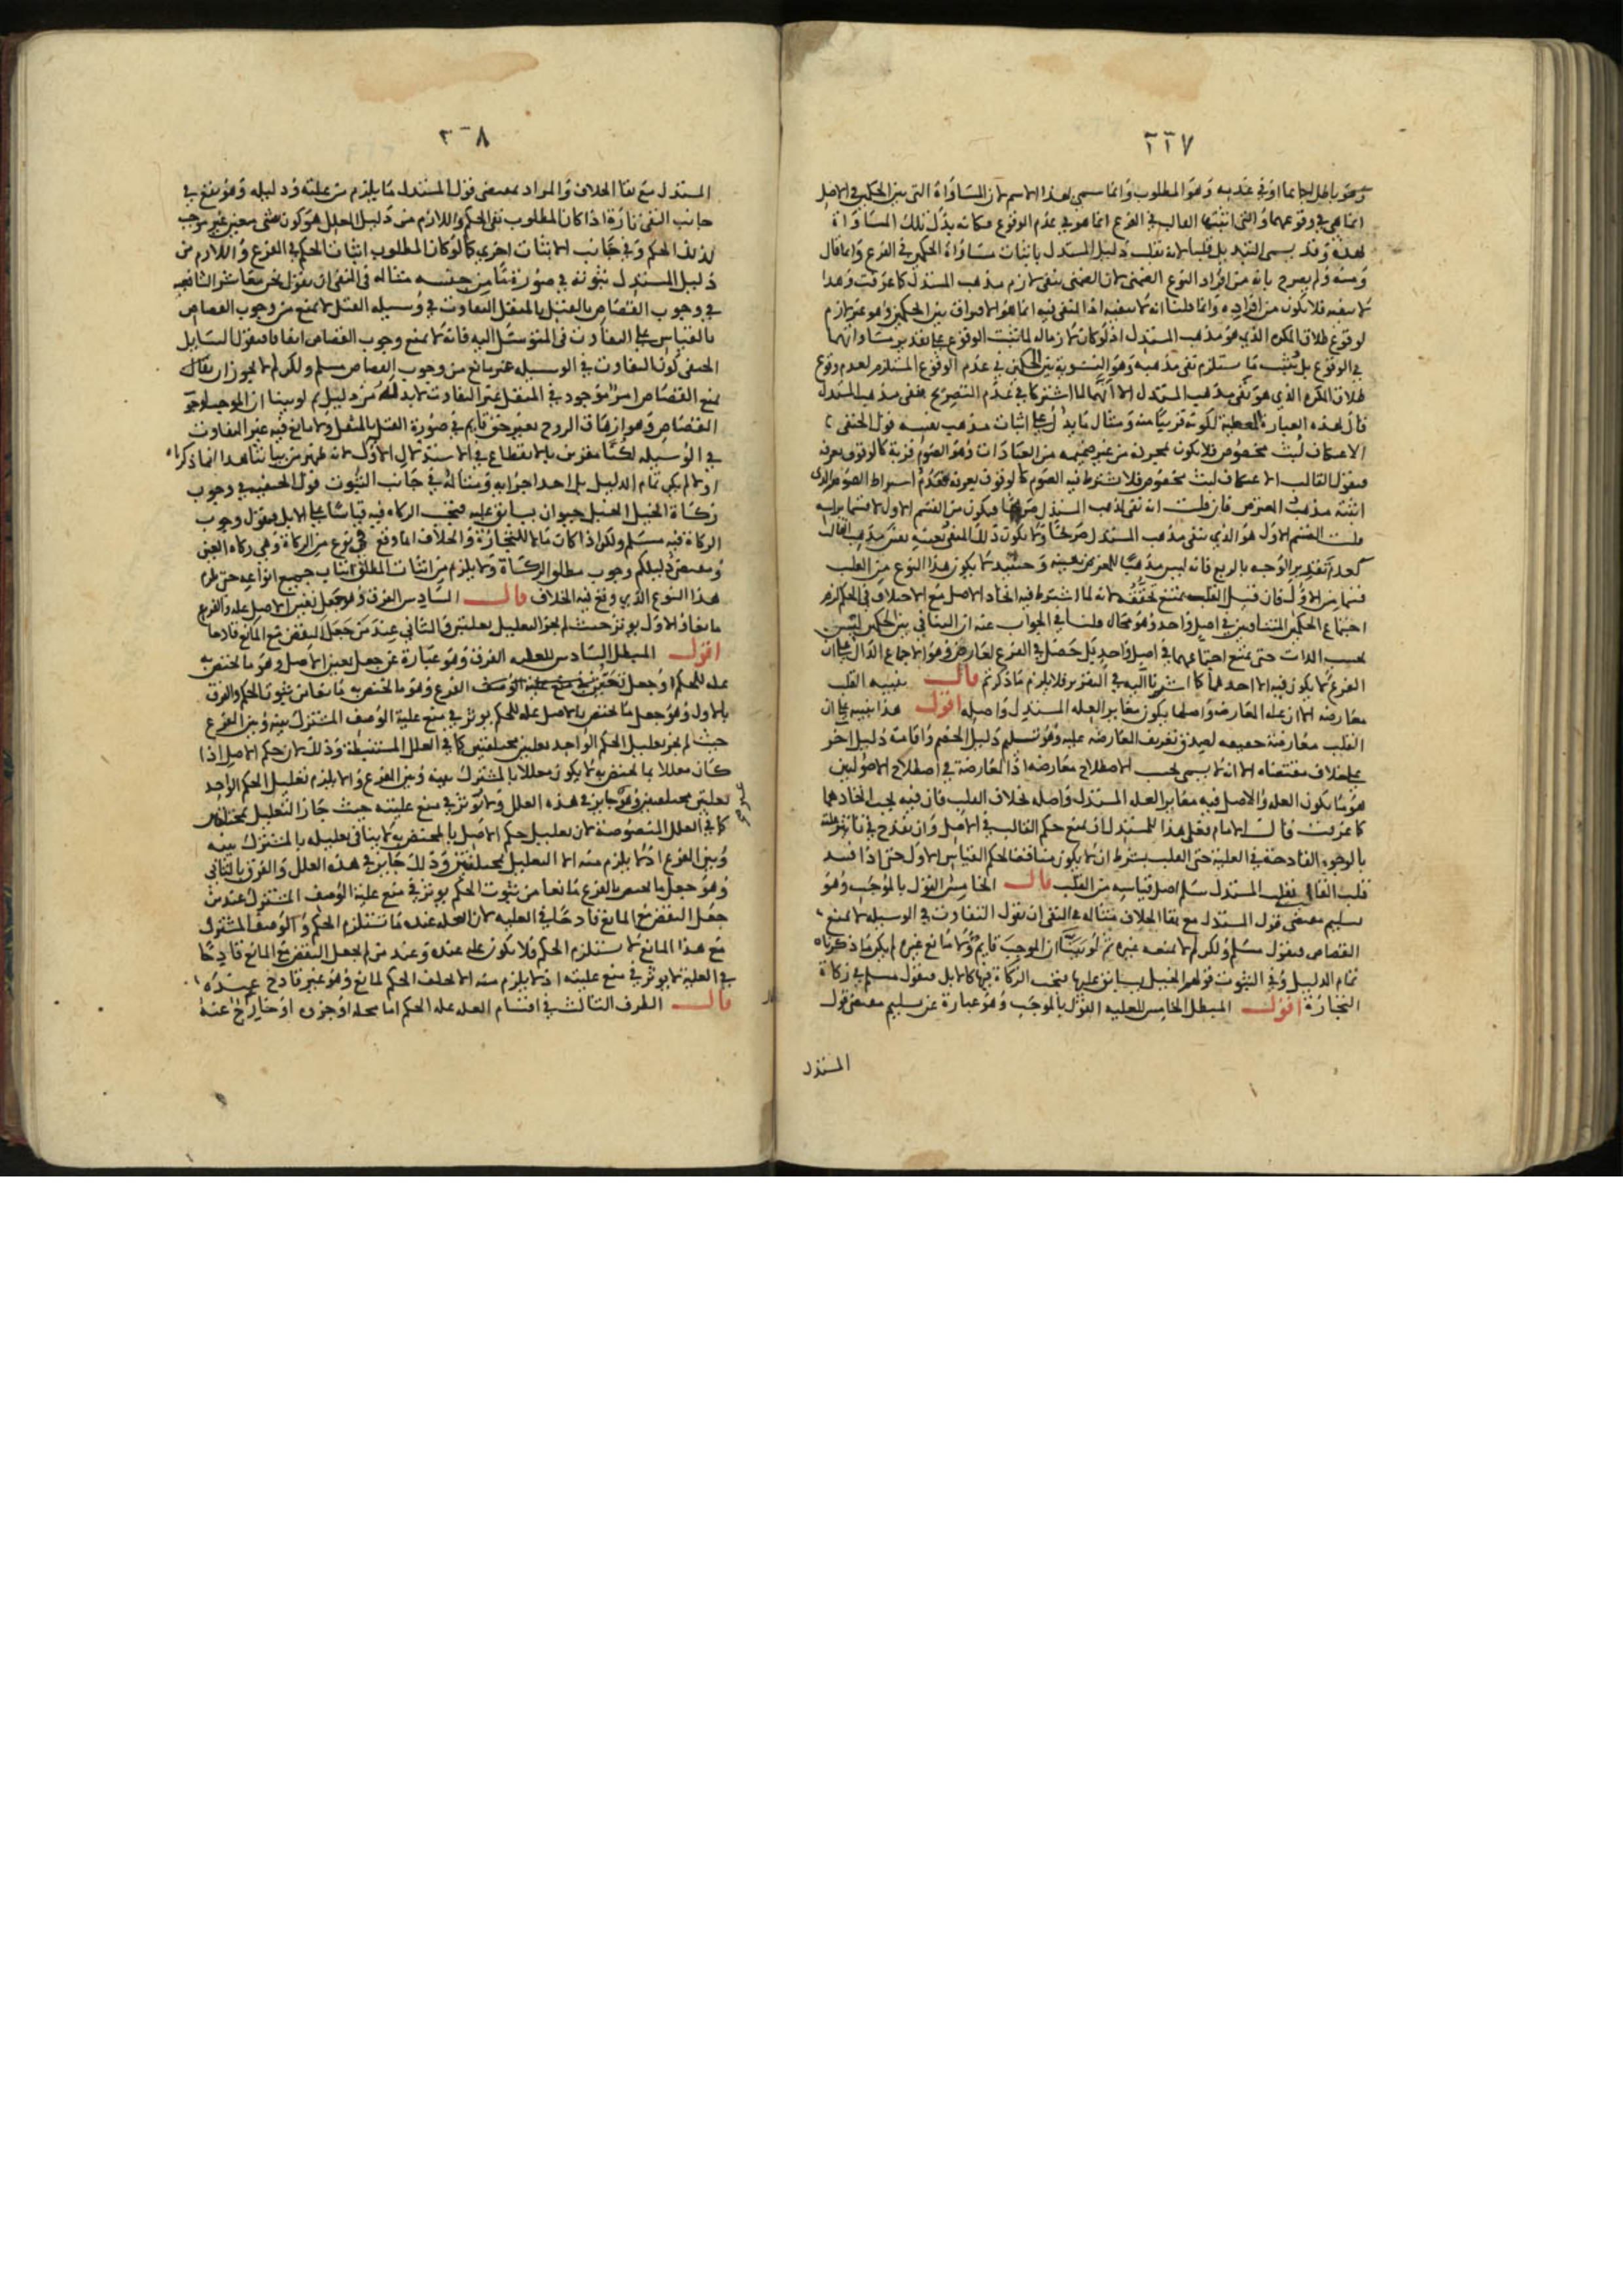 ٢٢٧
وهو باطل اجماعا او في عدمه وهو المطلوب وانما سمي بهذا الاسم لان المساواة التي بين الحكمين في الاصل
انما هي في وقوعهما والتي اثبتها القالب في الفرع انما هو في عدم الوقوع فكانه بدل تلك المساواة
بهذه وقد يسمى قلب لانه تقلب دليل المستدل باثبات مساواة الحكمين في الفرع وانما قال
ومنه ولم يصرح بانه من افراد النوع الضمني لان الضمني ينفي لازم مذهب المستدل كما عرفت وهذا
لا ينفيه فلا يكون من افراده وانما قلنا انه لا ينفيه اذ المنفي فيه انما هو الافتراق بين الحكمين وهو غير لازم
لوقوع طلاق المكره الذي هو مذهب المستدل اذ لو كان لازما له لما ثبت الوقوع على تقدير مساواتهما
في الوقوع بل يثبت ما يستلزم نفي مذهبه وهو التسوية بين الحكمين في عدم الوقوع المستلزم لعدم وقوع
طلاق المكره الذي هو نفي مذهب المستدل الا انهما لما اشتركا في عدم التصريح بنفي مذهب المستدل
قال بهذه العبارة لكونه قريبا منه ومثال ما يدل على اثبات مذهب نفسه قول الحنفي
الاعتكاف لبث مخصوص فلا يكون بمجرده من غير ضميمه من العبادات وهو الصوم قربة كالوقوف بعرفه
فيقول القالب الاعتكاف لبث مخصوص فلا يشترط فيه الصوم كالوقوف بعرفه فعدم اشتراط الصوم الذي
اثبته مذهب المعترض فان قلت انه نفي لمذهب المستدل صريحا فيكون من القسم الاول لا قسما براسه
قلت القسم الاول هو الذي ينفي مذهب المستدل صريحا ولا يكون ذلك المنفي بعينه نفس مذهب القالب
كعدم تقدير الوجه بالربع فانه ليس مذهبا للمعترض بعينه وحينئذ لا يكون هذا النوع من القلب
قسما من الاول فان قيل القلب يمتنع تحققه لانه لما اشترط فيه اتحاد الاصل مع الاختلاف في الحكم لزم
اجتماع الحكمين المتنافيين في اصل واحد وهو محال قلنا في الجواب عنه ان التنافي بين الحكمين ليس
بحسب الذات حتى يمتنع اجتماعهما في اصل واحد بل حصل في الفرع لعارض وهو الاجماع الدال على ان
الفرع لا يكون فيه الا احدهما كما اشرنا اليه في التقرير فلا يلزم ما ذكرتم قال تنبيه القلب
معارضه الا ان علة المعارضه واصلها يكون مغاير العله المستدل واصله اقول هذا تنبيه على ان
القلب معارضة حقيقه لصدق تعريف المعارضه عليه وهو تسليم دليل الخصم واقامة دليل اخر
على خلاف مقتضاه الا انه لا يسمى بحسب الاصطلاح معارضه اذ المعارضة في اصطلاح الاصوليين
هو ما يكون العله والاصل فيه مغاير العله المستدل واصله بخلاف القلب فان فيه يجب اتحادهما
كما عرفت قال الامام فعلى هذا للمستدل ان يمنع حكم القالب في الاصل وان يقدح في تاثير العله
بالوجوه القادحة في العلية حتى القلب بشرط ان لا يكون مناقضا لحكم القياس الاول حتى اذا فسد
قلب القالب بقلب المستدل سلم اصل قياسه من القلب قال الخامس القول بالموجب وهو
تسليم مقتضى قول المستدل مع بقا الخلاف مثاله في النفي ان نقول التفاوت في الوسيله لا يمنع
القصاص فيقول مسلم ولكن لم لا يمنعه غيره ثم لو بينا ان الموجب قايم ولا مانع غيره لم يكن ما ذكرناه
تمام الدليل وفي الثبوت قولهم الخيل يسابق عليها فتجب الزكاة فيها كالابل فيقول مسلم في زكاة
التجارة اقول المبطل الخامس للعليه القول بالموجب وهو عبارة عن تسليم مقتضى قول
المستدل
٢٢٨
المستدل مع بقا الخلاف والمراد بمقتضى قول المستدل ما يلزم من علته ودليله وهو يقع في
جانب النفي تارة اذا كان المطلوب نفي الحكم واللازم من دليل المعلل هو كون شي معين غير موجب
لذلك الحكم وفي جانب الاثبات اخرى كما لو كان المطلوب اثبات الحكم في الفرع واللازم من
دليل المستدل ثبوته في صورة ما من جنسه مثاله في النفي ان نقول نحن معاشر الشافعيه
في وجوب القصاص بالقتل بالمثقل التفاوت في وسيله القتل لا يمنع من وجوب القصاص
بالقياس على التفاوت في المتوسل اليه فانه لا يمنع وجوب القصاص اتفاقا فيقول السايل
الحنفي كون التفاوت في الوسيله غير مانع من وجوب القصاص مسلم ولكن لم لا يجوز ان يقال
يمنع القصاص امر موجود في المثقل غير التفاوت لا بد له من دليل ثم لو بينا ان الموجب لوجوب
القصاص وهو ازهاق الروح بغير حق قايم في صورة القتل بالمثقل ولا مانع فيه غير التفاوت
في الوسيله لكنا معترفين بالانقطاع في الاستدلال الاول لانه ظهر من بياننا هذا ان ما ذكرناه
اولا لم يكن تمام الدليل بل احد اجزايه ومثاله في جانب الثبوت قول الحنفيه في وجوب
زكاة الخيل الخيل حيوان يسابق عليه فتجب الزكاه فيه قياسا على الابل فيقول وجوب
الزكاة فيه مسلم ولكن اذا كانت مالا للتجارة والخلاف انما وقع في نوع من الزكاة وهي زكاه العين
ومقتضى دليلكم وجوب مطلق الزكاة ولا يلزم من اثبات المطلق اثبات جميع انواعه حتى يلزم
هذا النوع الذي وقع فيه الخلاف قال السادس الفرق وهو جعل تعين الاصل عله والفرع
مانعا والاول يوثر حيث لم يجز التعليل بعلتين والثاني عند من جعل النقض مع المانع قادحا
اقول المبطل السادس للعليه الفرق وهو عبارة عن جعل تعين الاصل وهو ما يختص به
عله للحكم او جعل تعين الفرع وهو ما يختص به مانعا من ثبوت الحكم والفرق
بالاول وهو جعل ما يختص بالاصل عله للحكم يوثر في منع علية الوصف المشترك بينه وبين الفرع
حيث لم يجز تعليل الحكم الواحد بعلتين مختلفتين كما في العلل المستنبطة وذلك لان حكم الاصل اذا
كان معللا بما يختص به لا يكون معللا بالمشترك بينه وبين الفرع والا يلزم تعليل الحكم الواحد
بعلتين مختلفتين وهو غير جايز في هذه العلل ولا يوثر في منع عليته حيث جاز التعليل بمختلفتين
كما في العلل المنصوصة لان تعليل حكم الاصل بالمختص به لا ينافي تعليله بالمشترك بينه
وبين الفرع اذ لا يلزم منه الا التعليل بمختلفتين وذلك جايز في هذه العلل والفرق بالثاني
وهو جعل ما يختص بالفرع مانعا من ثبوت الحكم يوثر في منع علية الوصف المشترك عند من
جعل النقض مع المانع قادحا في العليه لان العله عنده ما تستلزم الحكم والوصف المشترك
مع هذا المانع لا يستلزم الحكم فلا يكون عله عنده وعند من لم يجعل النقض مع المانع قادحا
في العلية لا يوثر في منع عليته اذ لا يلزم منه الا تخلف الحكم لمانع وهو غير قادح عنده
قال الطرف الثالث في اقسام العله عله الحكم اما محله او جزوه او خارج عنه